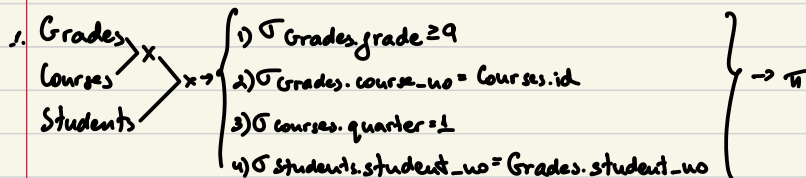 1. Grades
Courses
Students
× × →
1) σ Grades.grade ≥ 9
2) σ Grades.course_no = Courses.id
3) σ courses.quarter = 1
4) σ students.student_no = Grades.student_no
→ π